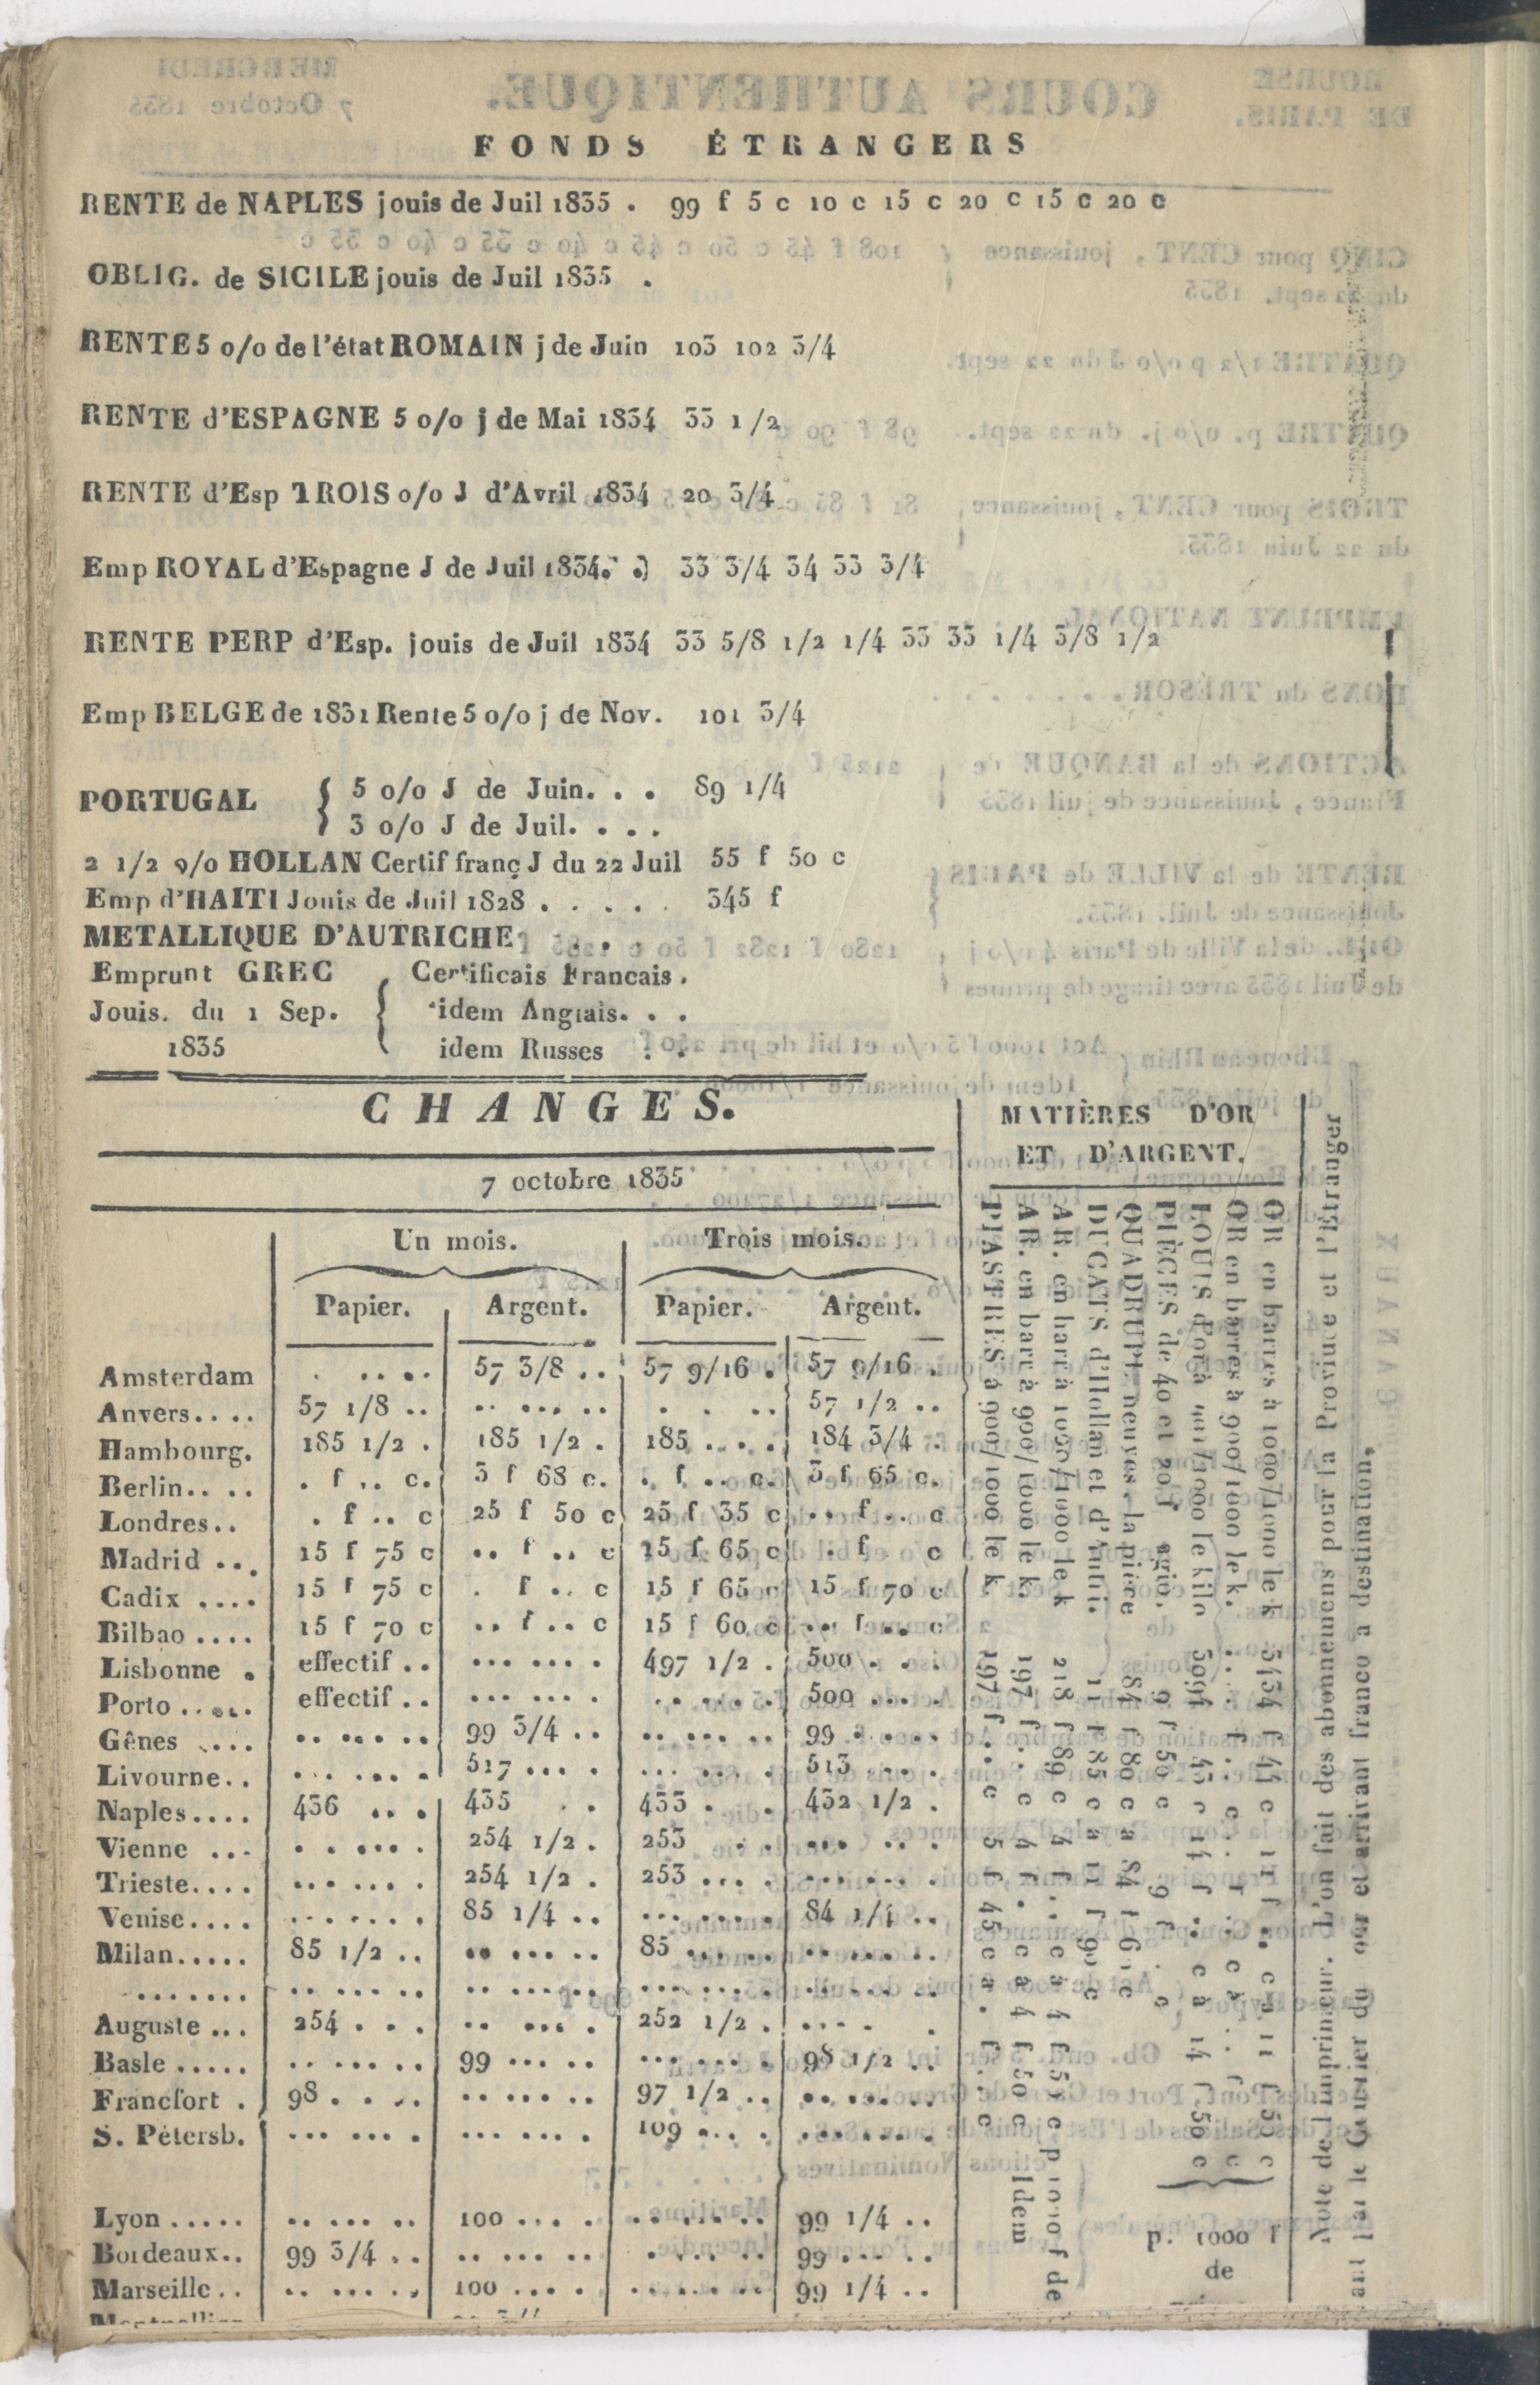 FONDS ÉTRANGERS
RENTE de NAPLES jouis de Juil 1835 . 99 f 5 c 10 c 15 c 20 c 15 c 20 c
OBLIG. de SICILE jouis de Juil 1835 .
RENTE 5 o/o de l'état ROMAIN j de Juin 103 102 3/4
RENTE d'ESPAGNE 5 o/o j de Mai 1834 33 1/2
RENTE d'Esp TROIS o/o J d'Avril 1834 20 3/4
Emp ROYAL d'Espagne J de Juil 1834. . 33 3/4 34 33 3/4
RENTE PERP d'Esp. jouis de Juil 1834 33 5/8 1/2 1/4 33 33 1/4 3/8 1/2
Emp BELGE de 1831 Rente 5 o/o j de Nov. 101 3/4
PORTUGAL { 5 o/o J de Juin. . . 89 1/4
3 o/o J de Juil. . . .
2 1/2 o/o HOLLAN Certif franç J du 22 Juil 55 f 50 c
Emp d'HAITI Jouis de Juil 1828 . . . . . 345 f
METALLIQUE D'AUTRICHE . . .
Emprunt GREC { Certificais Francais .
Jouis. du 1 Sep. idem Anglais. . .
1835 idem Russes . .
CHANGES.
7 octobre 1835
Un mois. Trois mois.
Papier. Argent. Papier. Argent.
Amsterdam . .. .. 57 3/8 .. 57 9/16 . 57 9/16 .
Anvers.. .. 57 1/8 .. .. ... .. . . .. 57 1/2 ..
Hambourg. 185 1/2 . 185 1/2 . 185 . . . 184 3/4 .
Berlin.. .. . f .. c. 3 f 68 c. . f .. c. 3 f 65 c.
Londres.. . f .. c 25 f 50 c 25 f 35 c .. f .. c
Madrid ... 15 f 75 c .. f .. c 15 f 65 c . f c
Cadix .... 15 f 75 c . f .. c 15 f 65 c 15 f 70 c
Bilbao .... 15 f 70 c .. f .. c 15 f 60 c .. f .. c
Lisbonne . effectif .. ... ... . 497 1/2 . 500 . . .
Porto ..... effectif .. ... ... . ...... 500 ... .
Gênes .... .. ... .. 99 3/4 .. .. ... .. 99 . ... .
Livourne.. . ... ... . 517 ... . ... ... . 513 ... .
Naples.... 436 .. . 435 . . 433 . . 432 1/2 .
Vienne ... . . ... . 254 1/2 . 253 . . ... .. .
Trieste.... ... ... . 254 1/2 . 253 ... . ... ... .
Venise.... ... ... . 85 1/4 .. ... ... . 84 1/4 ..
Milan..... 85 1/2 .. .. ... .. 85 .. ... .. ... ..
....... .. ... .. .. ... .. ... ... . ... ... .
Auguste ... 254 . . . .. ... . 252 1/2 . .... .
Basle ..... .. ... .. 99 ... .. ... ... . 98 1/2 ..
Francfort . 98 . . .. .. ... .. 97 1/2 .. .. ... ..
S. Pétersb. ... ... . ... ... . 109 ... . ... ... .
Lyon ..... .. ... .. 100 ... . .. ... .. 99 1/4 ..
Bordeaux.. 99 3/4 .. .. ... .. . ... .. 99 ... ..
Marseille.. .. ... .. 100 ... . .. ... .. 99 1/4 ..
MATIÈRES D'OR
ET D'ARGENT.
OR en barres à 1000/1000 le k 3434 f 44 c
OR en barres à 900/1000 le k.
LOUIS d'or à 1000 le kilo 3094 f 43 c 14 f .. c à 14 f 50 c
PIÈCES de 40 et 20 f agio. 9 f 50 c 9 f . c
QUADRUPL neuves. la pièce 84 f 80 c a 84 f c
DUCATS d'Hollan et d'Autri. 11 f 85 c a 11 f 90 c
AR. en barr à 1000/1000 le k 218 f 89 c 4 f .. c a 4 f 50 c p 1000 f de
AR. en barr à 900/1000 le k. 197 f .. c 4 f . c a 4 f 50 c Idem
PIASTRES à 900/1000 le k 197 f .. c 5 f 45 c a . f .. c
p. 1000 f
de
Note de l'imprimeur. L'on fait des abonnemens pour la Province et l'Étranger
par le Courier du jour et arrivant franco a destination,